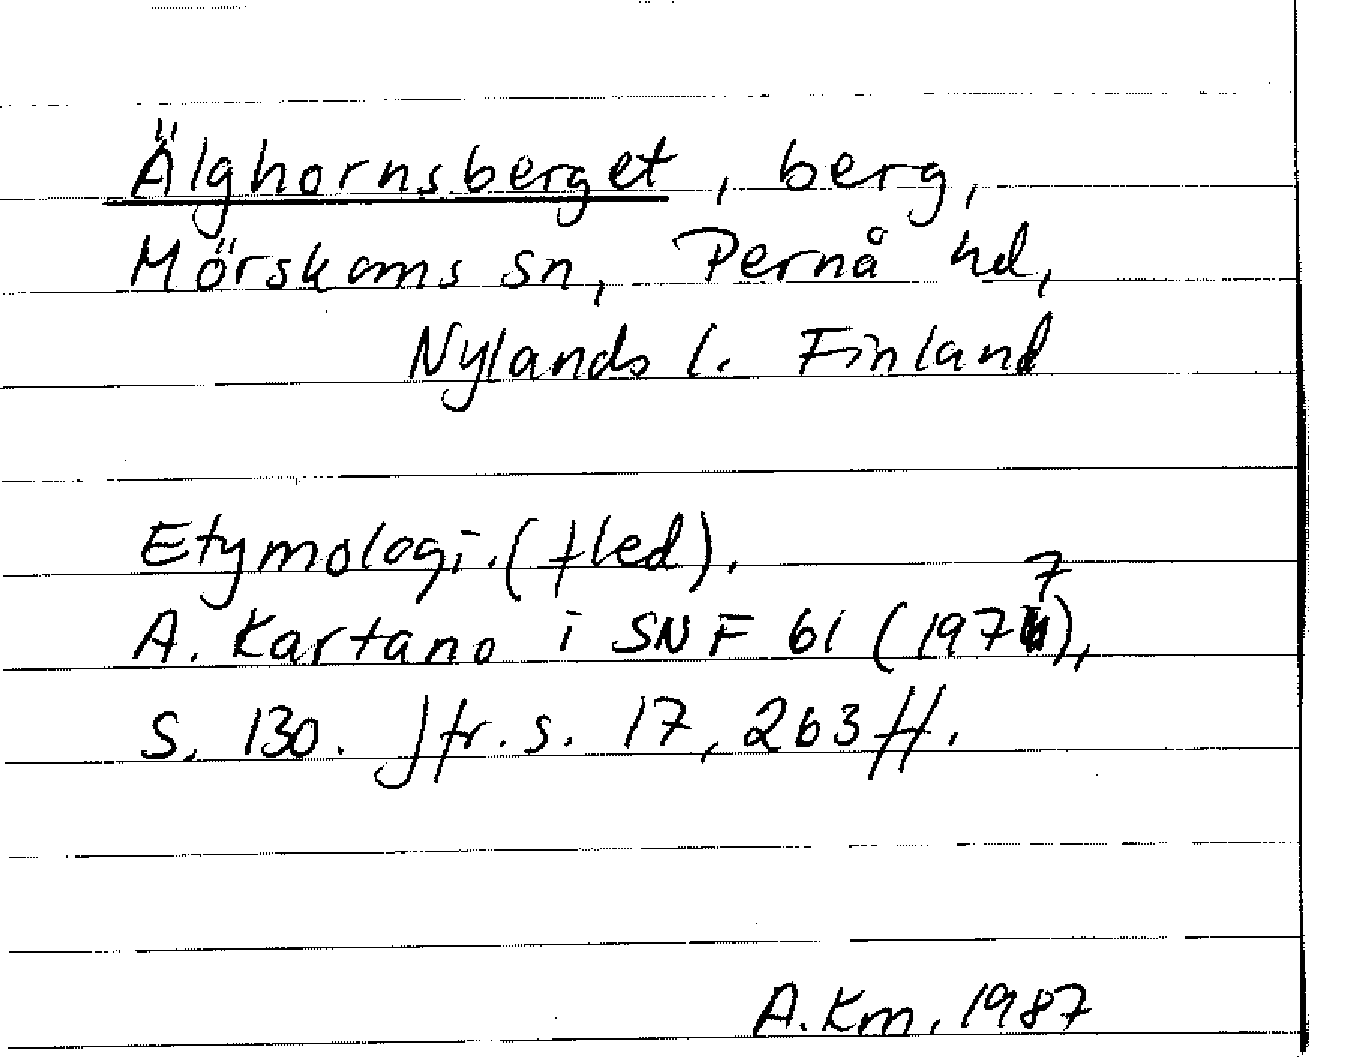 Älghornsberget, berg,
Mörskoms sn, Pernå hd,
Nylands l. Finland
Etymologi. (fled).
A. Kartano i SNF 61 (1977),
S. 130. Jfr. s. 17, 263 ff.
A. Km. 1987